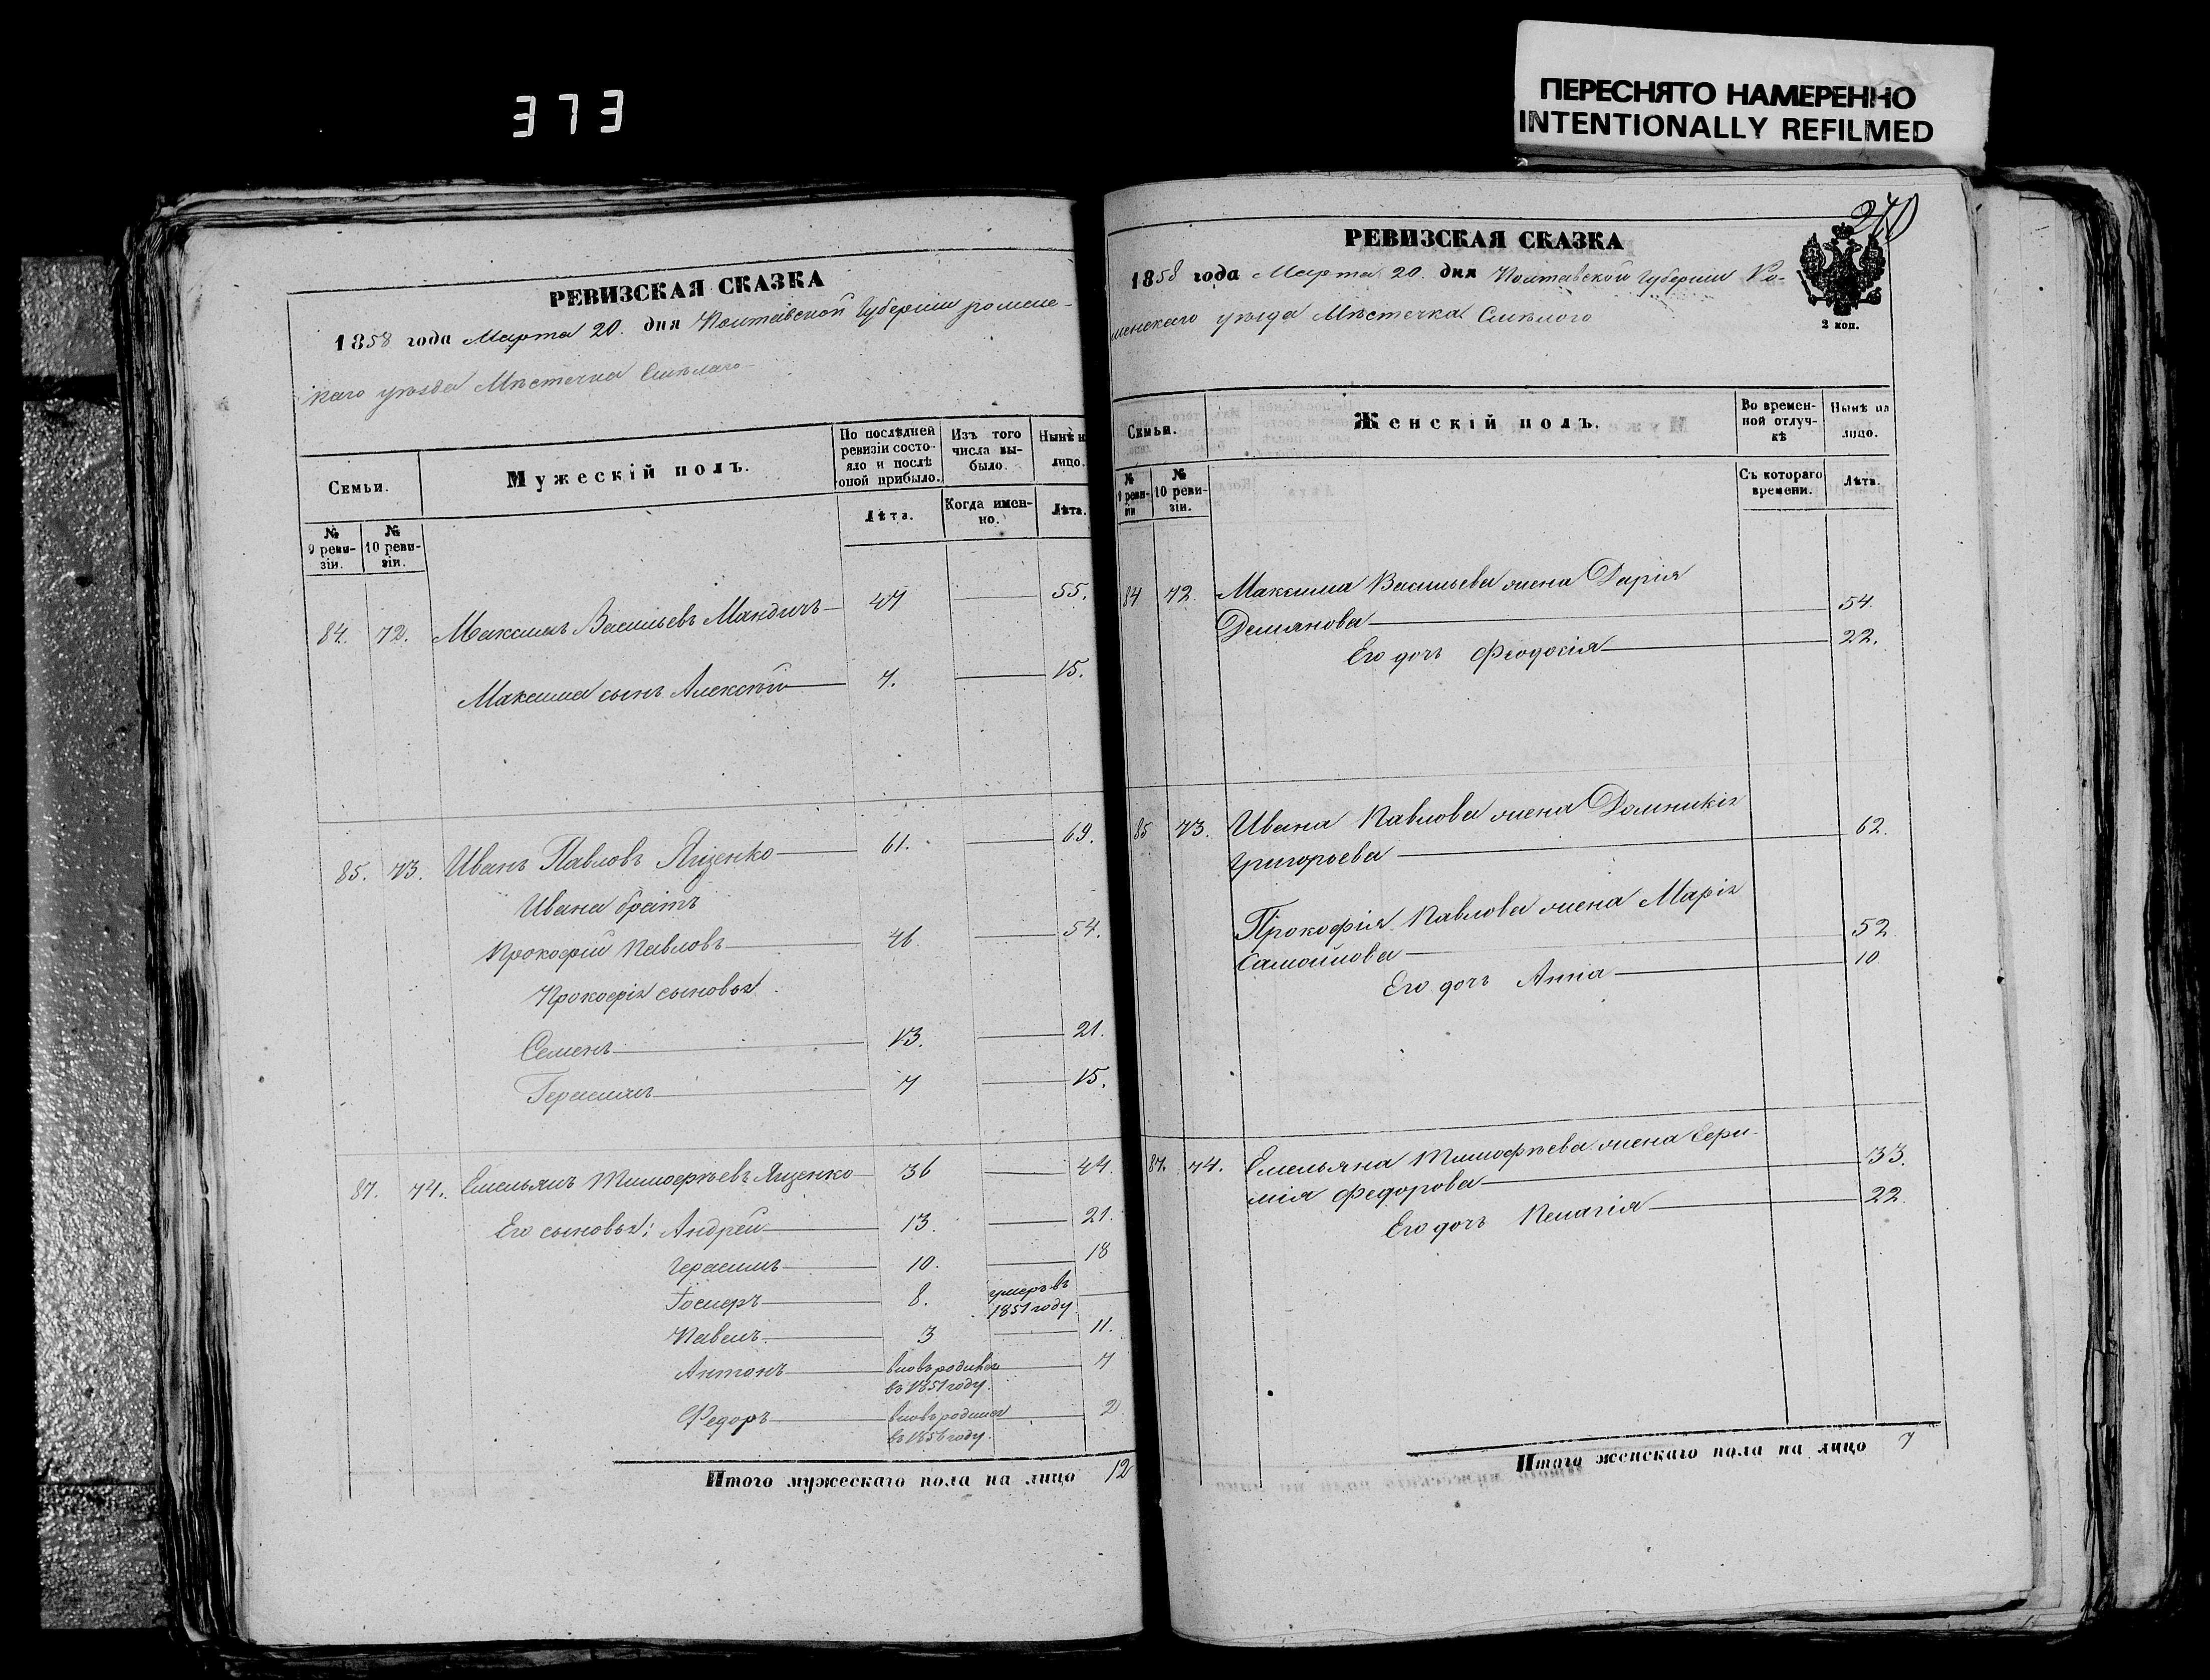 373
ПЕРЕСНЯТО НАМЕРЕННО
INTENTIONALLY REFILMED
РЕВИЗСКАЯ СКАЗКА
1858 года Марта 20. дня Полтавской Губерніи ромен-
скаго уѣзда Мѣстечка Смѣлаго
Семьи.
Мужескій полъ.
По послѣдней ревизіи состояло и послѣ оной прибыло.
Изъ того числа выбыло.
Нынѣ н
лицо.
№ 9 ревизіи.
№ 10 ревизіи.
Лѣта.
Когда именно.
Лѣта.
84. 72. Максимъ Васильевъ Мандичъ 47 55.
Максима сынъ Алексѣй 7. 15.
85. 73. Иванъ Павловъ Яценко 61. 69.
Ивана братъ
Прокофій Павловъ 46. 54.
Прокофія сыновья
Семенъ 13. 21.
Герасимъ 7 15.
87. 74. Емельянъ Тимофѣевъ Яценко 36 44.
Его сыновья: Андрей 13. 21.
Герасимъ 10. 18
8. умеръ въ
1851 году
Павелъ 3 11.
Антонъ вновь родился 7
въ 1851 году.
Федоръ вновь родился 2
въ 1856 году.
Итого мужескаго пола на лицо 12
240
РЕВИЗСКАЯ СКАЗКА
1858 года Марта 20. дня Полтавской Губерніи Ро-
менскаго уѣзда Мѣстечка Смѣлого
2 коп.
Семьи.
Женскій полъ.
Во временной отлучкѣ
Нынѣ на лицо.
№ 9 ревизіи
№ 10 ревизіи.
Съ котораго времени.
Лѣта.
84 72. Максима Васильева жена Дарія
Демянова 54.
Его дочь Феодосія 22.
85 73. Ивана Павлова жена Домникія
Григорьева 62.
Прокофія Павлова жена Марія
Самойлова 52
Его дочь Анна 10
87. 74. Емельяна Тимофѣева жена Еѳи-
мія Федорова 33.
Его дочь Пелагія 22.
Итого женскаго пола на лицо 7